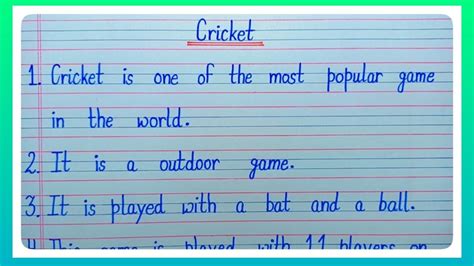 Cricket
1. Cricket is one of the most popular game
in the world.
2. It is a outdoor game.
3. It is played with a bat and a ball.
4. This game is played with 11 players on